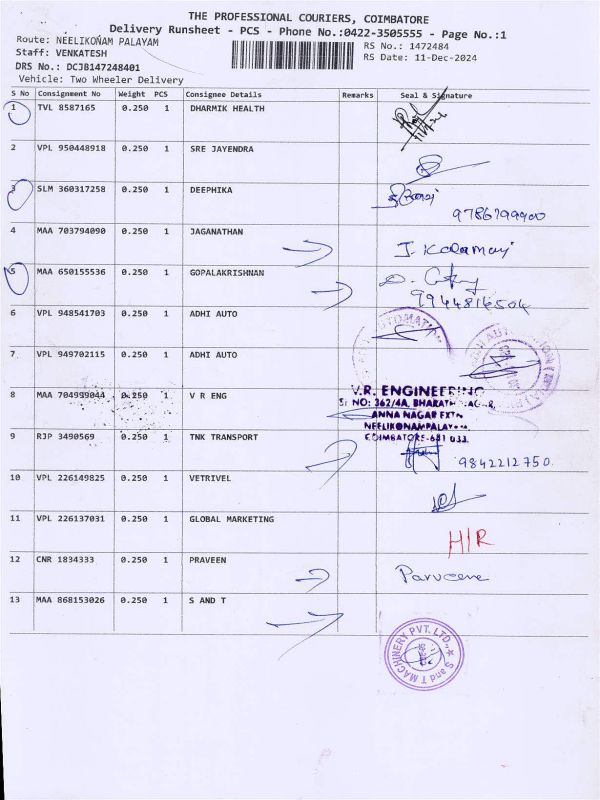 THE PROFESSIONAL COURIERS, COIMBATORE
Delivery Runsheet - PCS - Phone No.:0422-3505555 - Page No.:1
Route: NEELIKONAM PALAYAM
RS No.: 1472484
Staff: VENKATESH
RS Date: 11-Dec-2024
DRS No.: DCJB147248401
Vehicle: Two Wheeler Delivery
S No Consignment No Weight PCS Consignee Details Remarks Seal & Signature
1 TVL 8587165 0.250 1 DHARMIK HEALTH
2 VPL 950448918 0.250 1 SRE JAYENDRA
3 SLM 360317258 0.250 1 DEEPHIKA
9786799900
4 MAA 703794090 0.250 1 JAGANATHAN
5 MAA 650155536 0.250 1 GOPALAKRISHNAN
9944816504
6 VPL 948541703 0.250 1 ADHI AUTO
7 VPL 949702115 0.250 1 ADHI AUTO
8 MAA 704999044 0.250 1 V R ENG
V.R. ENGINEERING
ANNA NAGAR EXTN
NEELIKONAMPALAYAM,
COIMBATORE-641 033.
9 RJP 3490569 0.250 1 TNK TRANSPORT
9842212750
10 VPL 226149825 0.250 1 VETRIVEL
11 VPL 226137031 0.250 1 GLOBAL MARKETING
H/R
12 CNR 1834333 0.250 1 PRAVEEN
13 MAA 868153026 0.250 1 S AND T
S and T MACHINERY PVT. LTD.,